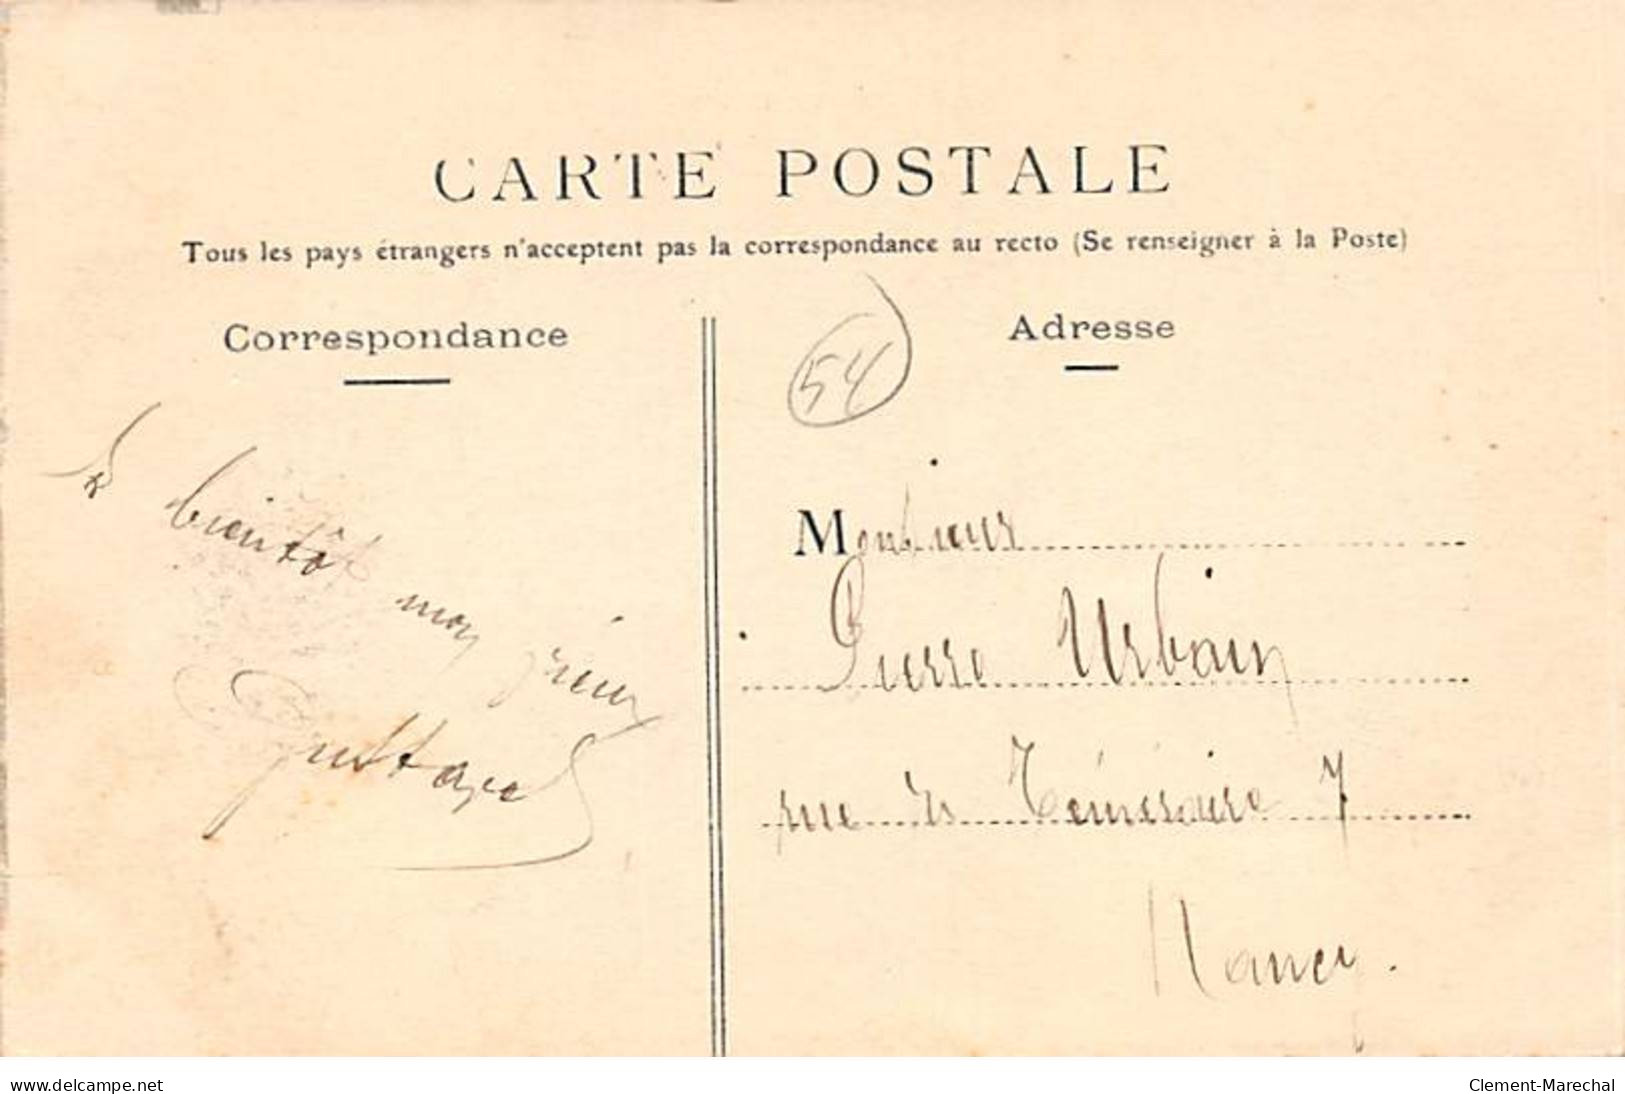 CARTE POSTALE
Tous les pays étrangers n'acceptent pas la correspondance au recto (Se renseigner à la Poste)
Correspondance
Adresse
54
A bientôt mon vieux
Gustave
Monsieur
Pierre Urbain
rue du Téméraire 7
Nancy.
www.delcampe.net
Clement-Marechal